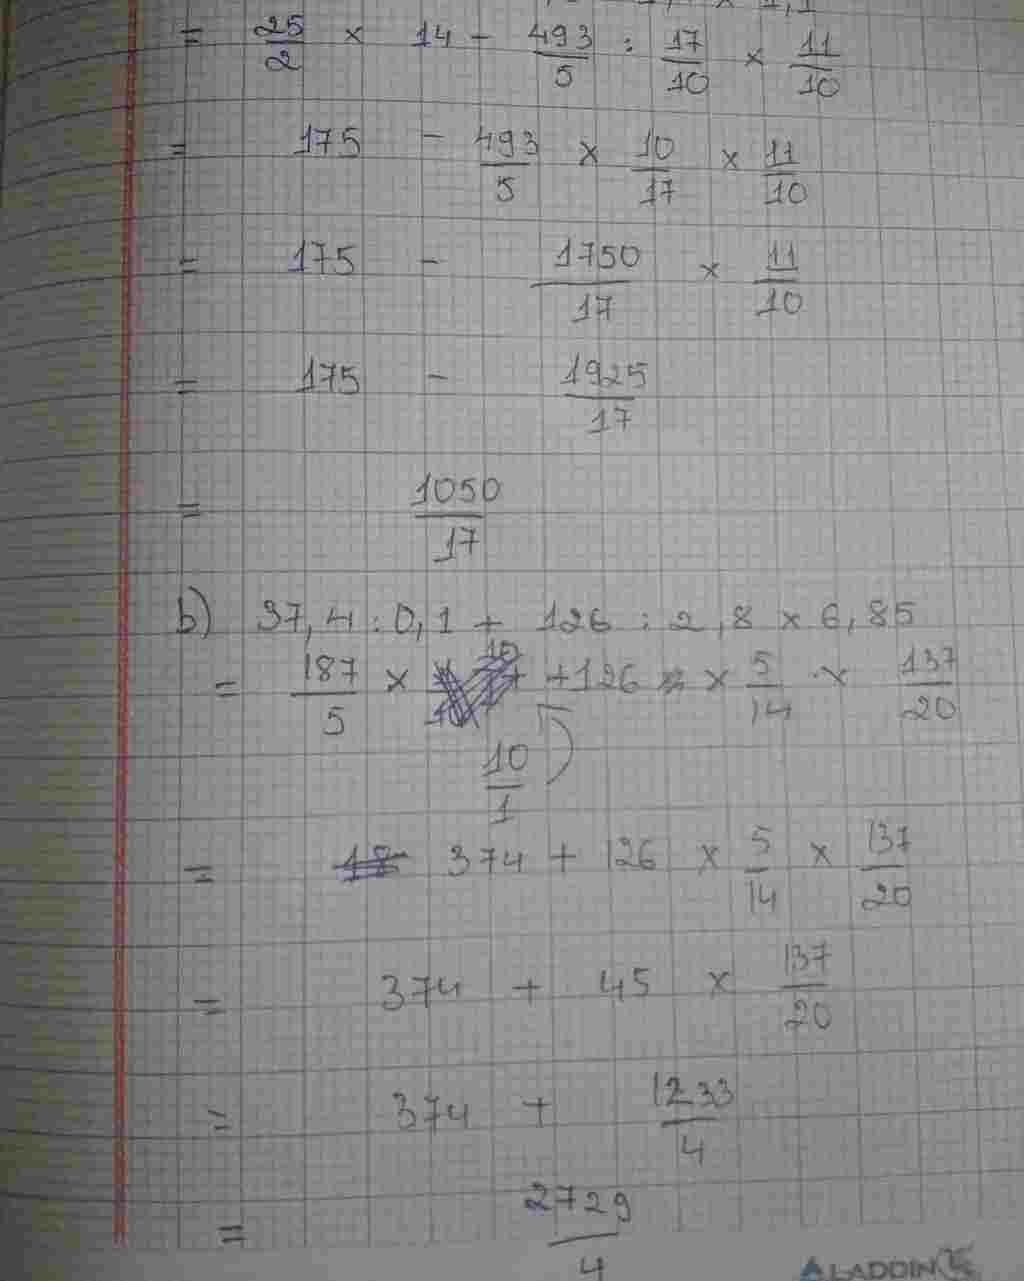 × 1,1
= 25/2 × 14 - 493/5 : 17/10 × 11/10
= 175 - 493/5 × 10/17 × 11/10
= 175 - 1750/17 × 11/10
= 175 - 1925/17
= 1050/17
b) 37,4 : 0,1 + 126 : 2,8 × 6,85
= 187/5 × 10/1 + 126 × 5/14 × 137/20
= 374 + 126 × 5/14 × 137/20
= 374 + 45 × 137/20
= 374 + 1233/4
= 2729/4
ALADDIN